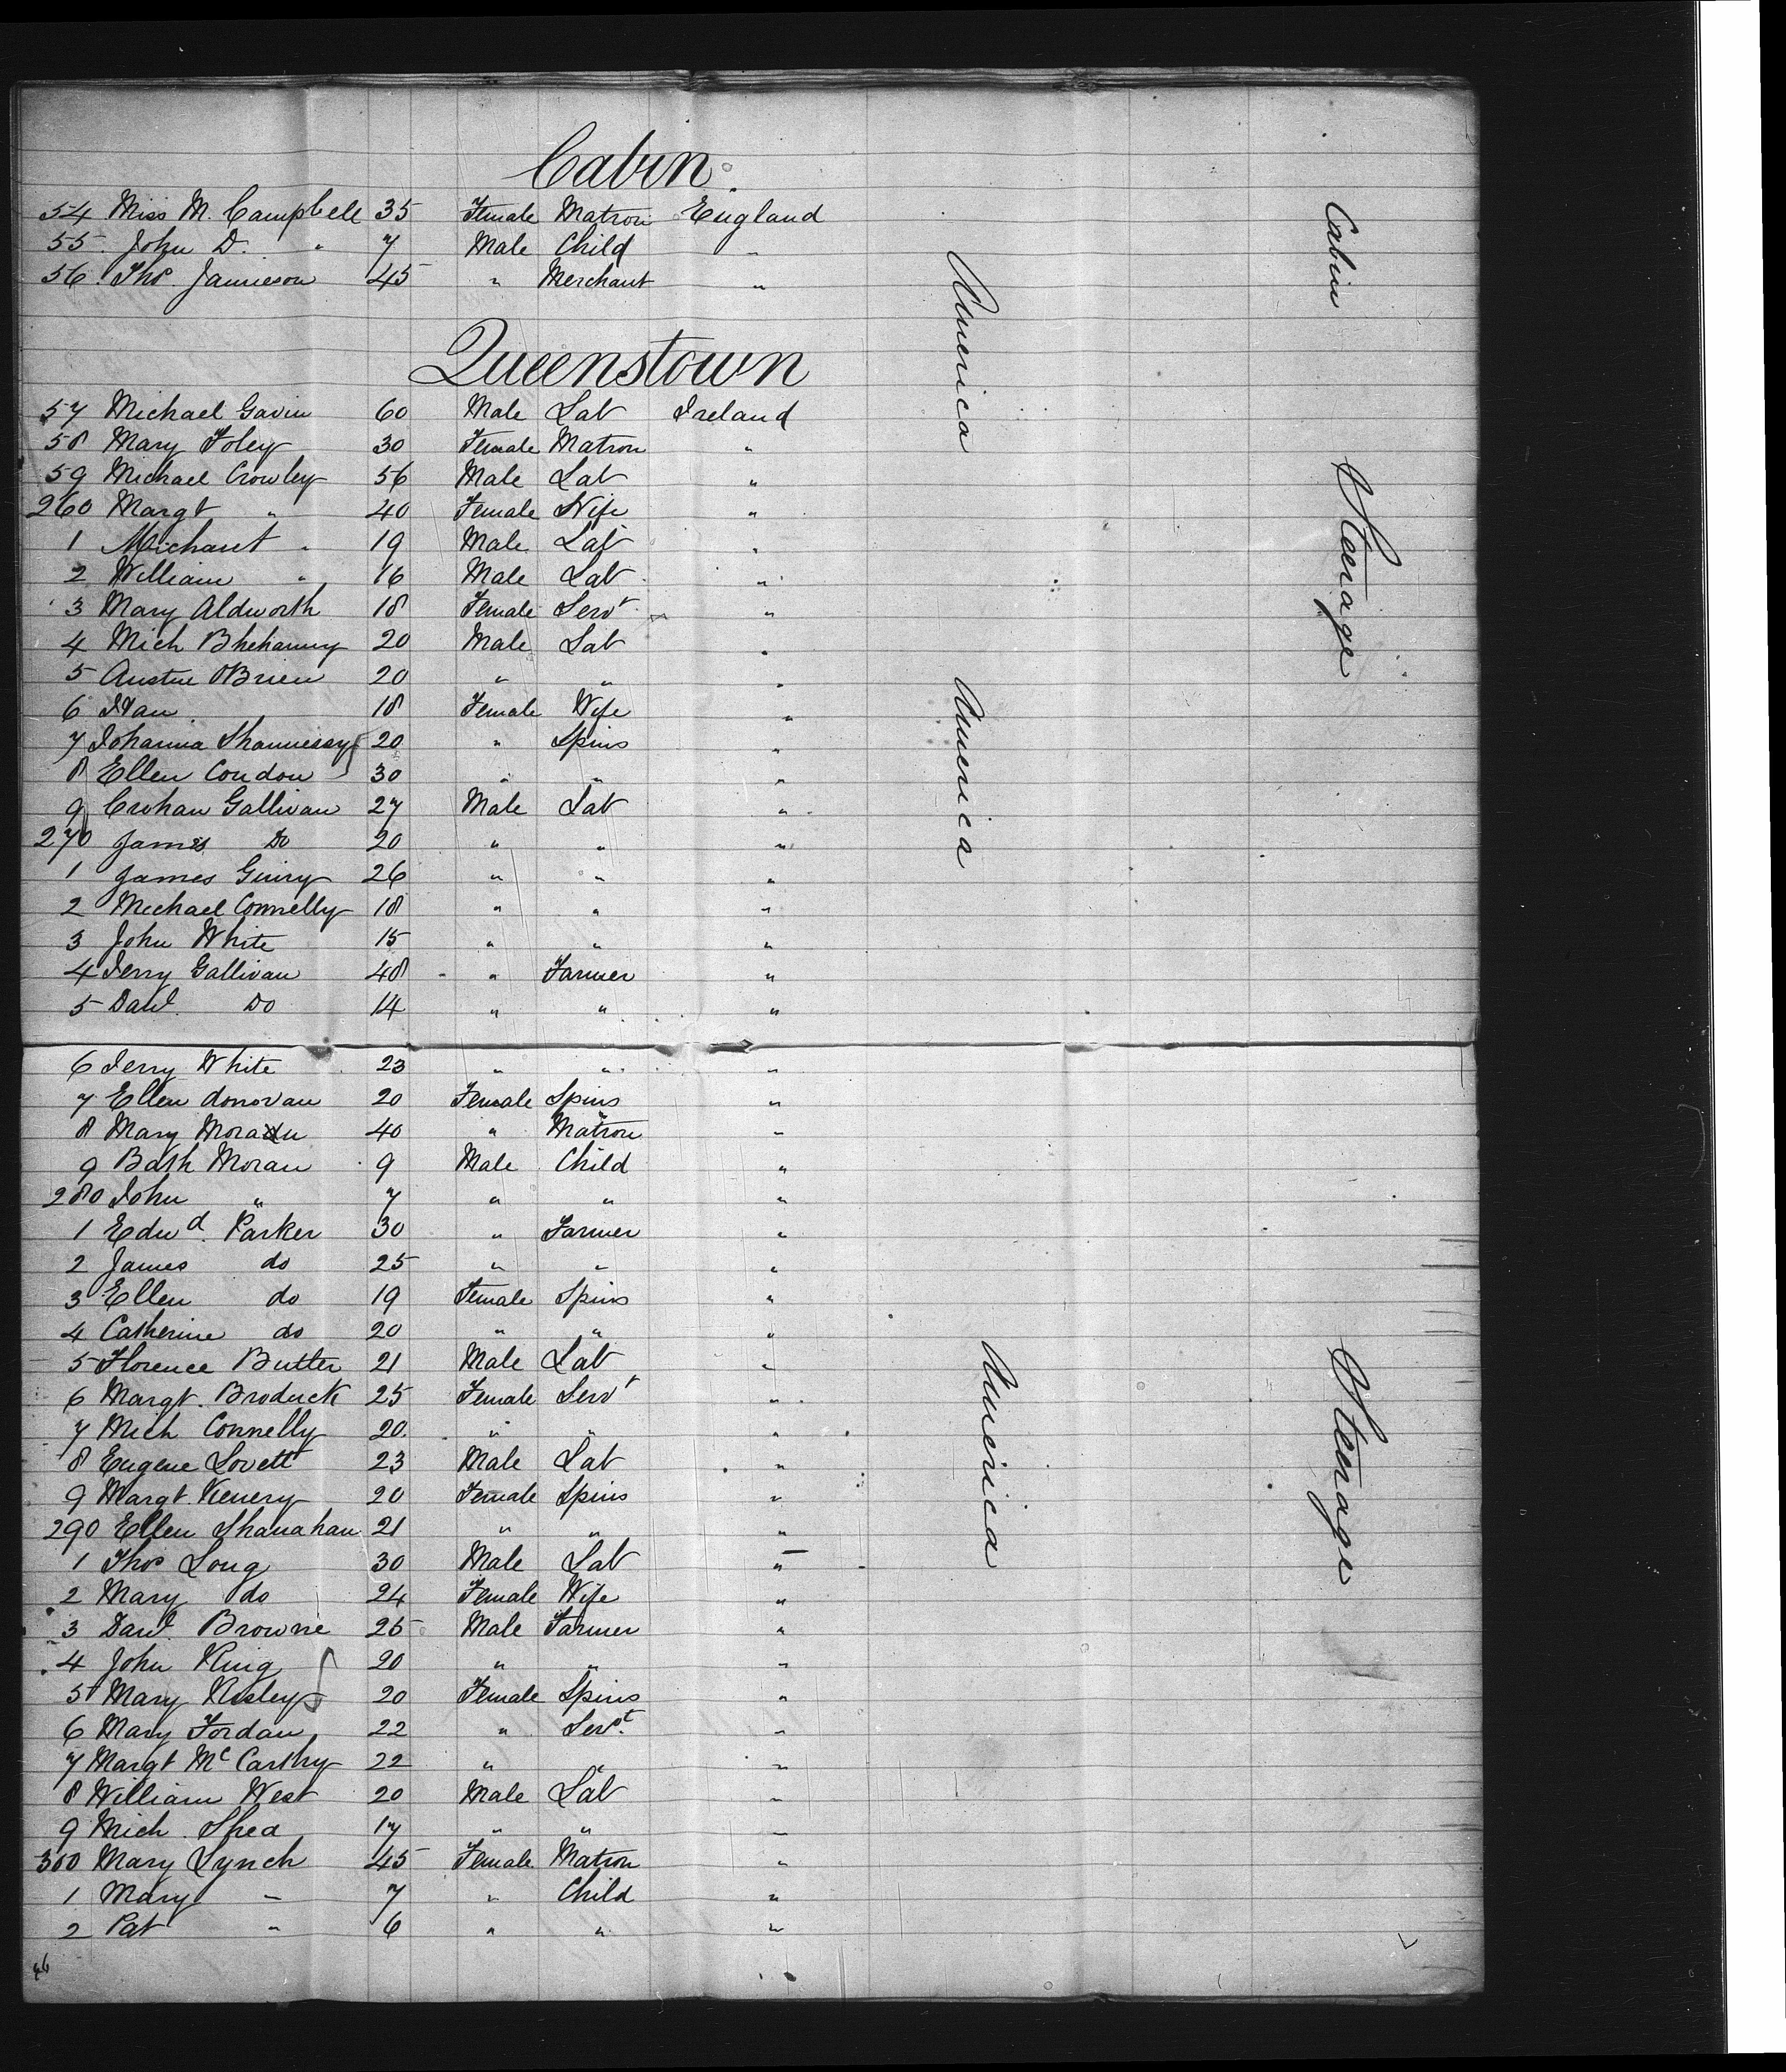 Cabin
54 Miss M. Campbell 35 Female Matron England
55. John D. " 7 Male Child "
56. Thos. Jamieson 45 " Merchant "
Queenstown
57 Michael Gavin 60 Male Lab Ireland
58 Mary Foley 30 Female Matron "
59 Michael Crowley 56 Male Lab "
260 Margt " 40 Female Wife "
1 " 19 Male Lab "
2 William " 16 Male Lab "
3 Mary Aldworth 18 Female Servt "
4 Mich 20 Male Lab "
5 OBrien 20 " " "
6 18 Female Wife "
7 Johanna Shannessy 20 " Spins "
8 Ellen Condon 30 " " "
9 Crohan Gallivan 27 Male Lab "
270 James Do 20 " " "
1 James Guiry 26 " " "
2 Michael Connelly 18 " " "
3 John White 15 " " "
4 Jerry Gallivan 48 " Farmer "
5 Danl. Do 14 " " "
6 Jerry White 23 " " "
7 Ellen donovan 20 Female Spins "
8 Mary Moran 40 " Matron "
9 Bath Moran 9 Male Child "
280 John " 7 " " "
1 Edwd. Parker 30 " Farmer "
2 James do 25 " " "
3 Ellen do 19 Female Spins "
4 Catherine do 20 " " "
5 Florence Butler 21 Male Lab "
6 Margt. Broduck 25 Female Servt "
7 Mich Connelly 20 " " "
8 Eugene Lovett 23 Male Lab "
9 Margt. Kenery 20 Female Spins "
290 Ellen Shanahan 21 " " "
1 Thos Long 30 Male Lab "
2 Mary do 24 Female Wife "
3 Danl. Browne 25 Male Farmer "
4 John King 20 " " "
5 Mary 20 Female Spins "
6 Mary Jordan 22 " Servt. "
7 Margt McCarthy 22 " " "
8 William West 20 Male Lab "
9 Mich. Shea 17 " " "
300 Mary Lynch 45 Female Matron "
1 Mary " 7 " Child "
2 Pat " 6 " " "
46
America
America
America
Cabin
Steerage
Steerage